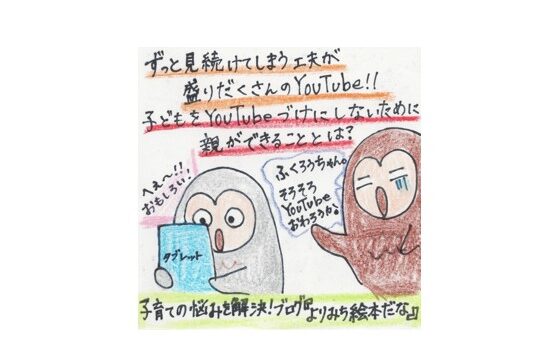 ずっと見続けてしまう工夫が
盛りだくさんのYouTube!!
子どもをYouTubeづけにしないために
親ができることとは?
へぇ〜!!
おもしろい!
ふくろうちゃん。
そろそろ
YouTube
おわろうか。
タブレット
子育ての悩みを解決!ブログ『よりみち絵本だな』